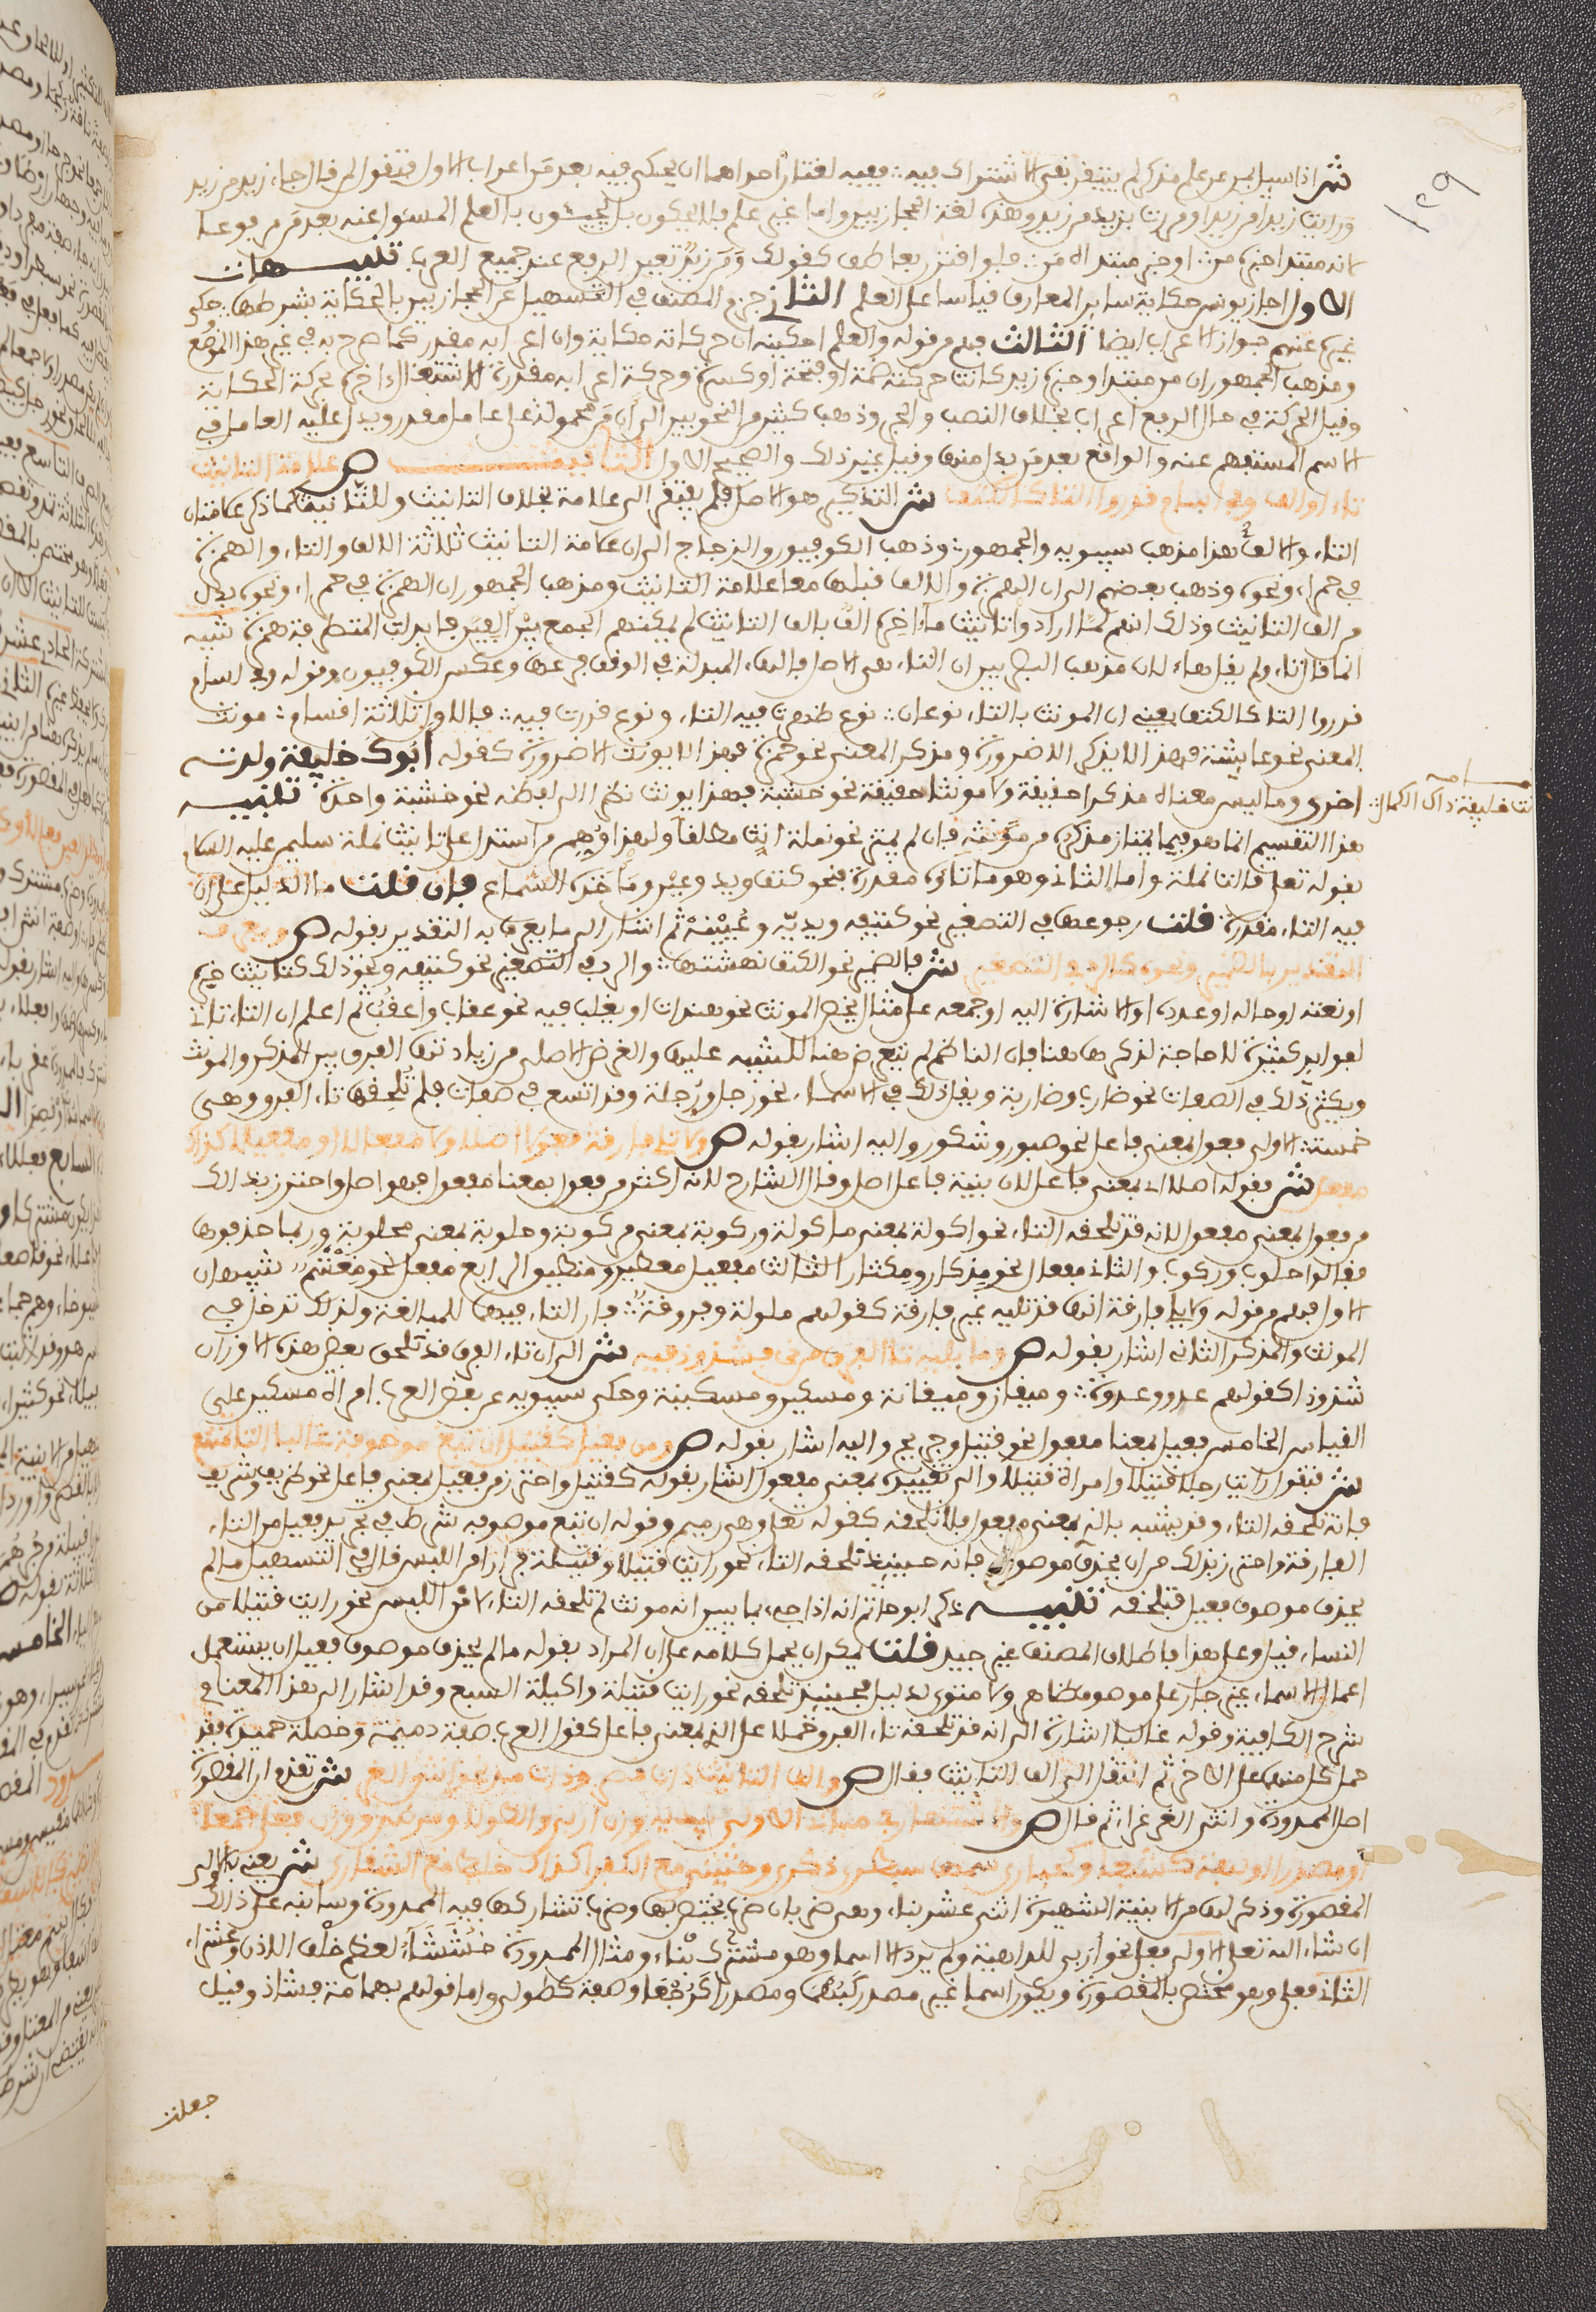 ش اذا سيل بمن عن علم مذكور لم يتيقن نفي الاشتراك فيه ففيه لغتان احداهما ان يحكى فيه بعد من اعراب الاول فتقول لمن قال جاء زيد من زيد
ورايت زيدا من زيدا ومررت بزيد من زيد وهذه لغة الحجازيين واما غيرهم فلا يحكون بل يجيئون بالعلم المسئول عنه بعد من مرفوعا
لانه مبتدا خبره من او خبر مبتداه من فلو اقترن بعاطف كقولك ومن زيد تعين الرفع عند جميع العرب تنبيهات
الاول اجاز يونس حكاية ساير المعارف قياسا على العلم الثاني جزم المصنف في التسهيل عن الحجازيين بالحكاية بشرطها وحكى
غيره عنهم جواز الاعراب ايضا الثالث فهم من قوله والعلم احكينه ان حركاته حكاية وان اعرابه مقدر كما صرح به في غير هذا الموضع
ومذهب الجمهور ان من مبتدا وخبره زيد كانت حركته ضمة او فتحة او كسرة وحركة اعرابه مقدرة لاشتغال اخره بحركة الحكاية
وقيل الحركة في حال الرفع اعراب بخلاف النصب والجر وذهب كثير من النحويين الى ان من محمولة على عامل مقدر ويدل عليه العامل في
الاسم المستفهم عنه والواقع بعد من بدل منها وقيل غير ذلك والصحيح الاول التانيث ص علامة التانيث
تاء او الف وفي اسام قدروا التا كالكتف ش التذكير هو الاصل فلم يفتقر الى علامة بخلاف التانيث وللتانيث كما ذكر علامتان
التاء والالف هذا مذهب سيبويه والجمهور وذهب الكوفيون والزجاج الى ان علامة التانيث ثلاثة الالف والتاء والهمزة
في حمراء ونحوه وذهب بعضهم الى ان الهمزة والالف قبلها معا علامة التانيث ومذهب الجمهور ان الهمزة في حمراء ونحوه بدل
من الف التانيث وذلك انهم لما ارادوا تانيث ما اخره الف بالف التانيث لم يمكنهم الجمع بين الفين فابدلت المتطرفة همزة تنبيه
انما قال تاء ولم يقل هاء لان مذهب البصريين ان التاء هي الاصل فالهاء المبدلة في الوقف فرعها وعكس الكوفيون وقوله وفي اسام
قدروا التا كالكتف يعني ان المونث بالتاء نوعان نوع ظهرت فيه التاء ونوع قدرت فيه فالاول ثلاثة اقسام مونث
المعنى نحو عايشة فهذا لا يذكر الا ضرورة ومذكر المعنى نحو حمزة فهذا لا يونث الا ضرورة كقوله ابوك خليفة ولدته
اخرى وما ليس معناه مذكرا حقيقة ولا مونثا حقيقة نحو خشبة فهذا يونث نظرا الى لفظه نحو خشبة واحدة تنبيه
هذا التقسيم انما هو فيما يمتاز مذكره من مونثه فان لم يمتز نحو نملة انث مطلقا ولهذا وهم من استدل على تانيث نملة سليمن عليه السلام
بقوله تعلى قالت نملة واما الثاني وهو ما تاؤه مقدرة فنحو كتف ويد وعين وماخذه السماع فان قلت ما الدليل على ان
فيه التاء مقدرة قلت رجوعها في التصغير نحو كتيفه ويديه وعيينة ثم اشار الى ما يعرف به التقدير بقوله ص ويعرف
التقدير بالضمير ونحوه كالرد في التصغير ش فالضمير نحو الكتف نهشتها والرد في التصغير نحو كتيفه ونحو ذلك كتانيث خبره
او نعته او حاله او عدده او الاشارة اليه او جمعه على مثال يخص المونث نحو هندات او يغلب فيه نحو عقاب واعقب ثم اعلم ان التاء تاتي
لفوايد كثيرة لا حاجة لذكرها هنا فان الناظم لم يتعرض هنا للتنبيه عليها والغرض الاصلي من زيادتها الفرق بين المذكر والمونث
ويكثر ذلك في الصفات نحو ضارب وضاربة ويقل ذلك في الاسماء نحو رجل ورجلة وقد اتسع في صفات فلم تلحقها تاء الفرق وهي
خمسة الاول فعول بمعنى فاعل نحو صبور وشكور واليه اشار بقوله ص ولا تلي فارقة فعولا اصلا ولا المفعال او مفعيلا كذاك
مفعل ش فقوله اصلا اي بمعنى فاعل لان بنية فاعل اصل وقال الشارح لانه اكثر من فعول بمعنى مفعول فهو اصل واحترز بذلك
من فعول بمعنى مفعول لانه قد تلحقه التاء نحو اكولة بمعنى ماكولة وركوبة بمعنى مركوبة وحلوبة بمعنى محلوبة وربما حذفوها
فقالوا حلوب وركوب والثاني مفعال نحو مذكار ومكثار الثالث مفعيل معطير ومنطيق الرابع مفعل نحو مغشم تنبيهان
الاول فهم من قوله ولا تلي فارقة انها قد تليه غير فارقة كقولهم ملولة وفروقة فان التاء فيهما للمبالغة ولذلك تدخل في
المونث والمذكر الثاني اشار بقوله ص وما تليه تا الفرق من ذي فشذوذ فيه ش الى ان تاء الفرق قد تلحق بعض هذه الاوزان
شذوذا كقولهم عدو وعدوة وميقان وميقانة ومسكين ومسكينة وحكى سيبويه عن بعض العرب امراة مسكين على
القياس الخامس فعيل بمعنى مفعول نحو قتيل وجريح واليه اشار بقوله ص ومن فعيل كقتيل ان تبع موصوفه غالبا التا تمتنع
ش فتقول رايت رجلا قتيلا وامراة قتيلا والى تقييده بمعنى مفعول اشار بقوله كقتيل واحترز من فعيل بمعنى فاعل نحو ظريف وشريف
فانه تلحقه التاء وقد يشبه بالذي بمعنى مفعول فلا تلحقه كقوله تعلى وهي رميم وقوله ان تبع موصوفه شرط في تجريد فعيل من التاء
الفارقة واحترز بذلك من ان يحذف موصوفه فانه حينئذ تلحقه التاء نحو رايت قتيلا وقتيلة فرارا من اللبس قال في التسهيل ما لم
يحذف موصوف فعيل فتلحقه تنبيه ذكر ابو حاتم انه اذا جيء بما يبين انه مونث لم تلحقه التاء لامن اللبس نحو رايت قتيلا من
النساء قيل وعلى هذا فاطلاق المصنف غير جيد قلت يمكن ان يحمل كلامه على ان المراد بقوله ما لم يحذف موصوف فعيل ان يستعمل
اعمال الاسماء غير جار على موصوف ظاهر ولا منوي لدليل فحينئذ تلحقه نحو رايت قتيلة واكيلة السبع وقد اشار الى هذا المعنى في
شرح الكافية وقوله غالبا اشارة الى انه قد تلحقه تاء الفرق حملا على الذي بمعنى فاعل كقول العرب صفة ذميمة وخصلة حميدة فقد
حمل كل منهما على الاخر ثم انتقل الى الف التانيث فقال ص والف التانيث ذات قصر وذات مد نحو انثى الغر ش تقدم ان المقصورة
اصل الممدودة وانثى الغر غراء ثم قال ص والاشتهار في مباني الاولى يبديه وزن اربى والطولى ومرطى ووزن فعلى جمعا
او مصدرا او صفة كشبعى وكحبارى سمهى سبطرى ذكرى وحثيثى مع الكفرى كذاك خليطى مع الشقارى ش يعني بالاولى
المقصورة وذكر لها من الابنية الشهيرة اثني عشر بناء وهي ضربان ضرب يختص بها وضرب تشاركها فيه الممدودة وسانبه على ذلك
ان شاء الله تعلى الاول فعلى نحو اربى للداهية ولم يرد الا اسما وهو مشترك بناء ومثال الممدودة خششاء لعظم خلف الاذن وعشراء
الثاني فعلى وهو مختص بالمقصورة ويكون اسما غير مصدر كبهمى ومصدرا كرجعى وصفة كطولى واما قولهم بهماة فشاذ وقيل
جعلت